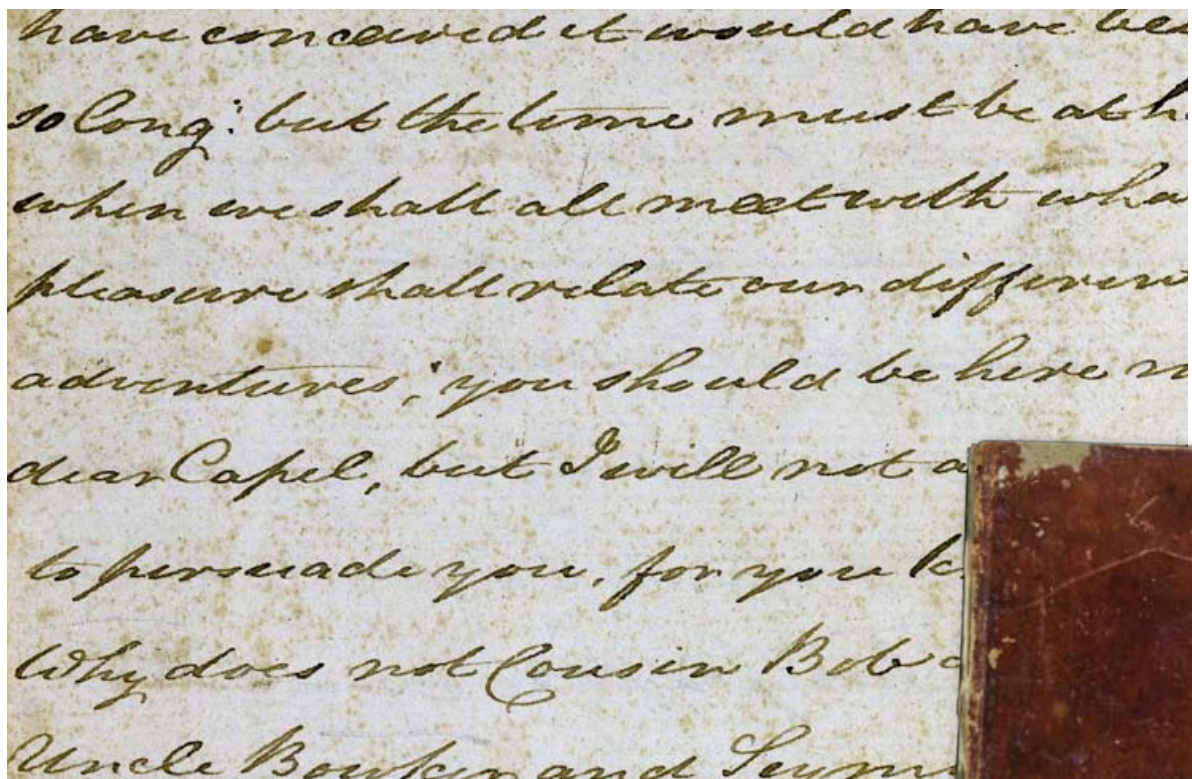 have conceived it would have
so long: but the time must be at
when we shall all meet with
pleasure shall relate our different
adventures, you should be here
dear Capel, but I will not
to persuade you, for you
Why does not Cousin Bob
Uncle Bowker and